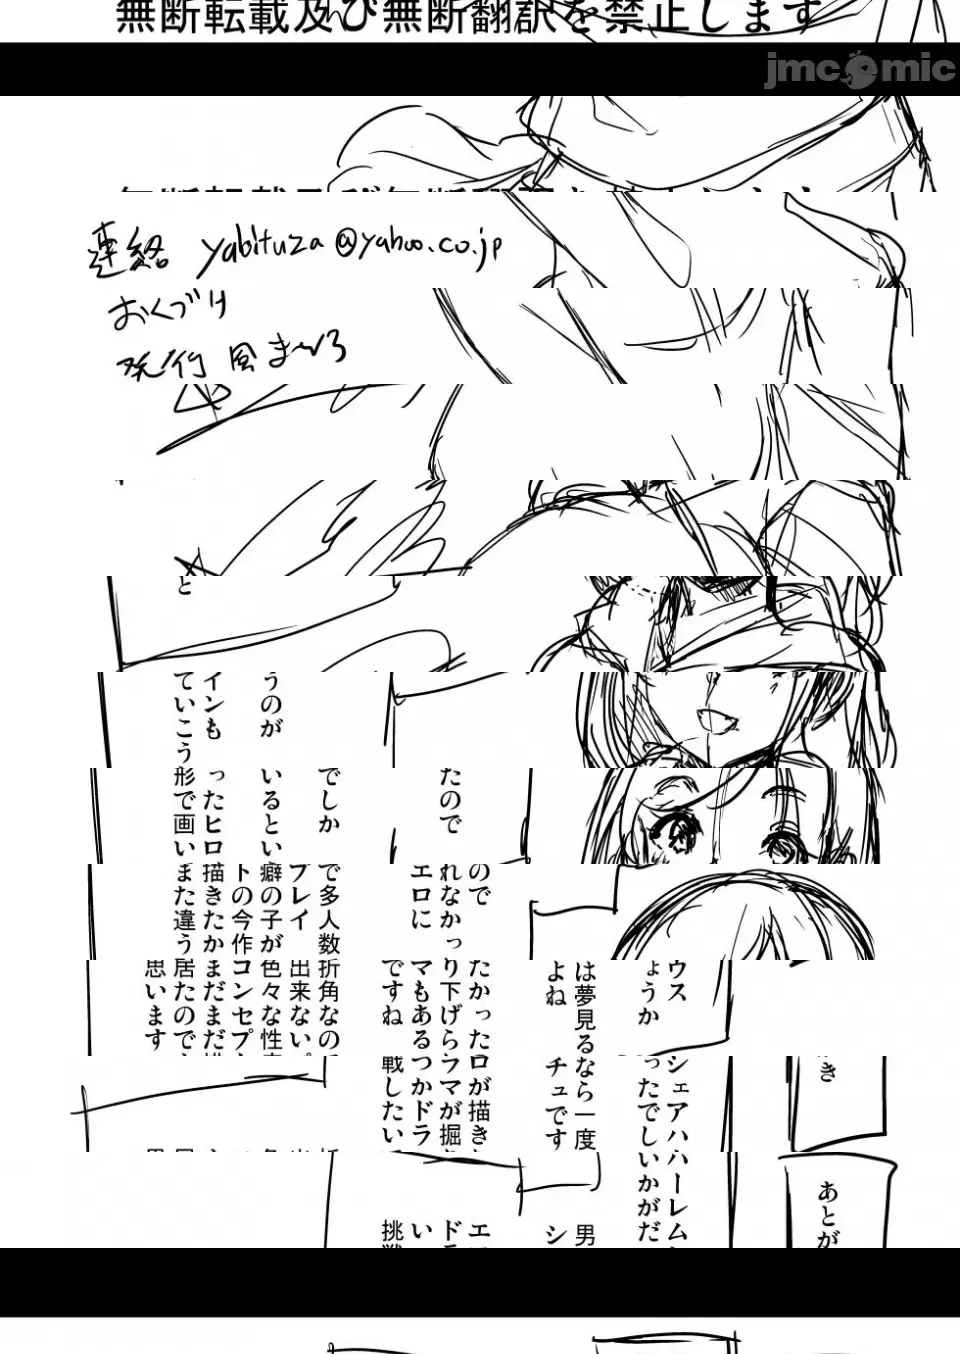 無断転載及び無断翻訳を禁止します
jmcomic
連絡 yabituza@yahoo.co.jp
おくづけ
発行 風まくろ
と
うのが
インも
ていこう
たので
でしか
いるとい
ったヒロ
形で画い
ので
れなかっ
エロに
で多人数
プレイ
癖の子が
トの今作
描きたか
また違う
ウス
ょうか
は夢見る
よね
たかった
り下げら
マもある
ですね
折角なの
出来ない
色々な性
コンセプ
まだまだ
居たので
思います
き
シェアハ
ったでし
なら一度
チュです
ロが描き
ラマが掘
つかドラ
戦したい
あとが
ハーレム
いかがだ
男
シ
エ
ド
い
挑